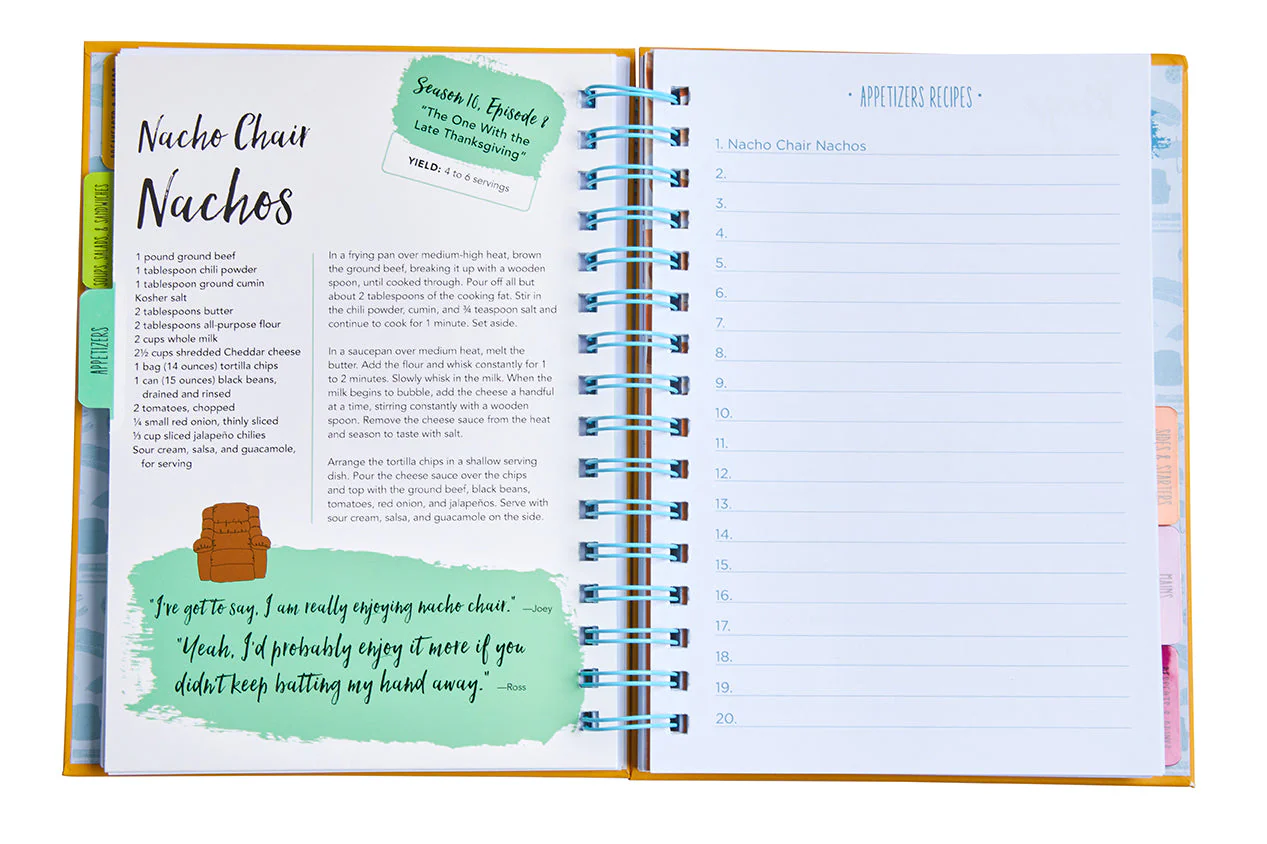 Nacho Chair
Nachos
Season 10, Episode 8
"The One With the
Late Thanksgiving"
YIELD: 4 to 6 servings
1 pound ground beef
1 tablespoon chili powder
1 tablespoon ground cumin
Kosher salt
2 tablespoons butter
2 tablespoons all-purpose flour
2 cups whole milk
2½ cups shredded Cheddar cheese
1 bag (14 ounces) tortilla chips
1 can (15 ounces) black beans,
drained and rinsed
2 tomatoes, chopped
¼ small red onion, thinly sliced
⅓ cup sliced jalapeño chilies
Sour cream, salsa, and guacamole,
for serving
In a frying pan over medium-high heat, brown
the ground beef, breaking it up with a wooden
spoon, until cooked through. Pour off all but
about 2 tablespoons of the cooking fat. Stir in
the chili powder, cumin, and ¾ teaspoon salt and
continue to cook for 1 minute. Set aside.
In a saucepan over medium heat, melt the
butter. Add the flour and whisk constantly for 1
to 2 minutes. Slowly whisk in the milk. When the
milk begins to bubble, add the cheese a handful
at a time, stirring constantly with a wooden
spoon. Remove the cheese sauce from the heat
and season to taste with salt.
Arrange the tortilla chips in a shallow serving
dish. Pour the cheese sauce over the chips
and top with the ground beef, black beans,
tomatoes, red onion, and jalapeños. Serve with
sour cream, salsa, and guacamole on the side.
"I've got to say, I am really enjoying nacho chair." —Joey
"Yeah, I'd probably enjoy it more if you
didn't keep batting my hand away." —Ross
SOUPS, SALADS, & SANDWICHES
APPETIZERS
• APPETIZERS RECIPES •
1. Nacho Chair Nachos
2.
3.
4.
5.
6.
7.
8.
9.
10.
11.
12.
13.
14.
15.
16.
17.
18.
19.
20.
SIDES & STARTERS
MAINS